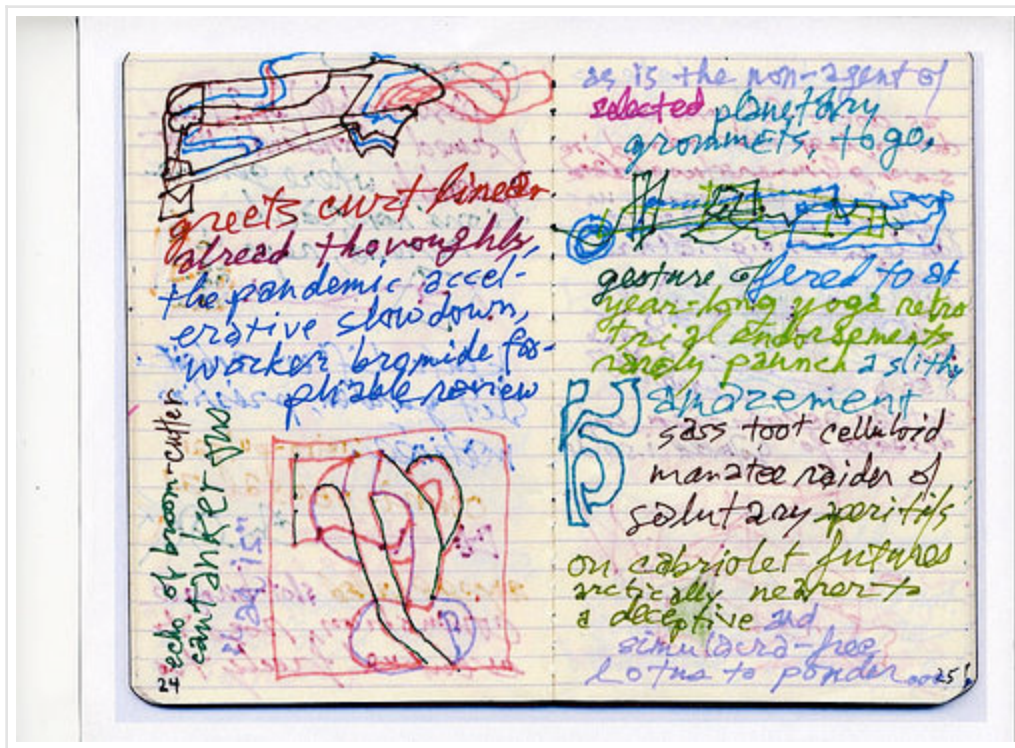 greets curt linear
dread thoroughly,
the pandemic accel-
erative slowdown,
worker bromide for
pliable review
echo of broom-cutter
cantankerous
24
as is the non-agent of
selected planetary
grommets, to go,
gesture offered to at
year-long yoga retro
trial endorsements
rarely paunch a slithy
amazement
sass toot celluloid
manatee raider of
salutary aperitifs
on cabriolet futures
arctically nearer to
a deceptive and
simulacra-free
lotus to ponder....
25